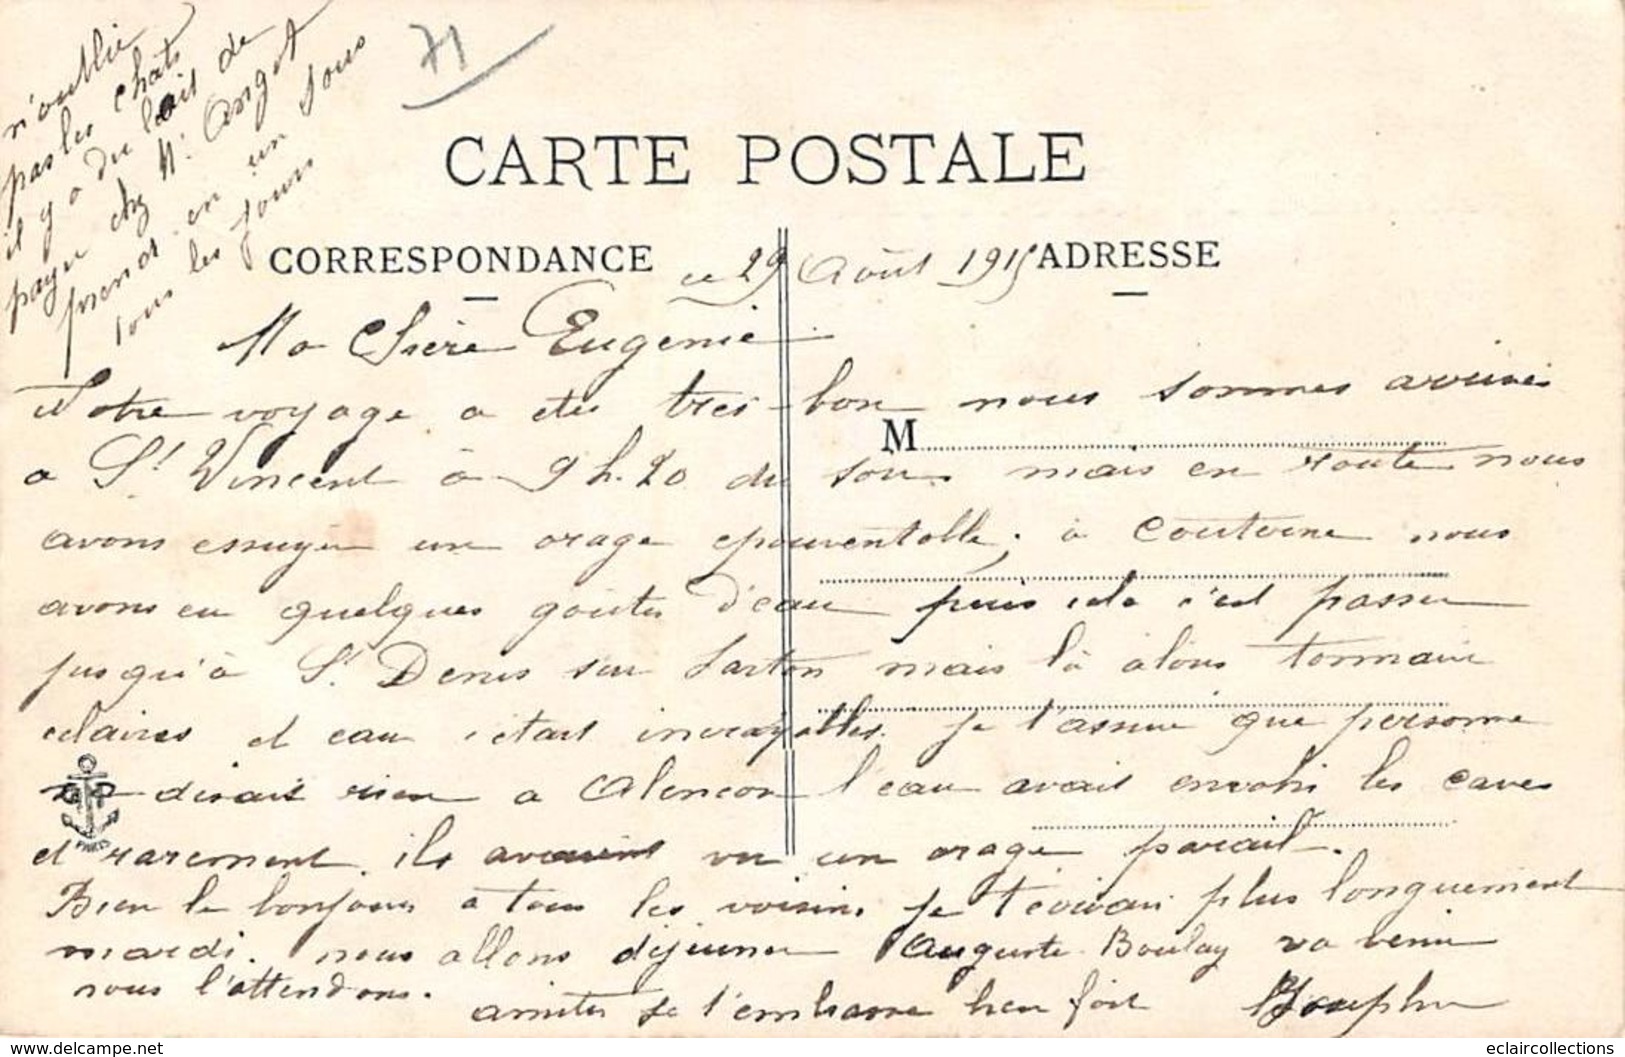 n'oublie
pas les chats
il y a du lait de
payer chez Mr Angot
prends en un sous
tous les jours
71
CARTE POSTALE
CORRESPONDANCE
ADRESSE
ce 29 Août 1915
Ma Chère Eugenie
Notre voyage a etu tres bon nous sommes arrivés
a St Vincent à 9 h. 20 du soir mais en route nous
avons essuyer un orage epouventable; à Couterne nous
avons eu quelques goutes d'eau puis cela c'est passer
jusqu'à St Denis sur Sarton mais là alors tonnaire
eclaires et eau c'etait incroyables. je t'assure que personne
ne disait rien a Alencon l'eau avait envahi les caves
et rarement ils avaient vu un orage pareil.
Bien le bonjours a tous les voisins je t'ecivari plus longuement
mardi. nous allons déjeuner Auguste Boulay va venir
nous l'attendons.
amities je t'embrasse bien fort Josephe
M
PARIS
eclaircollections